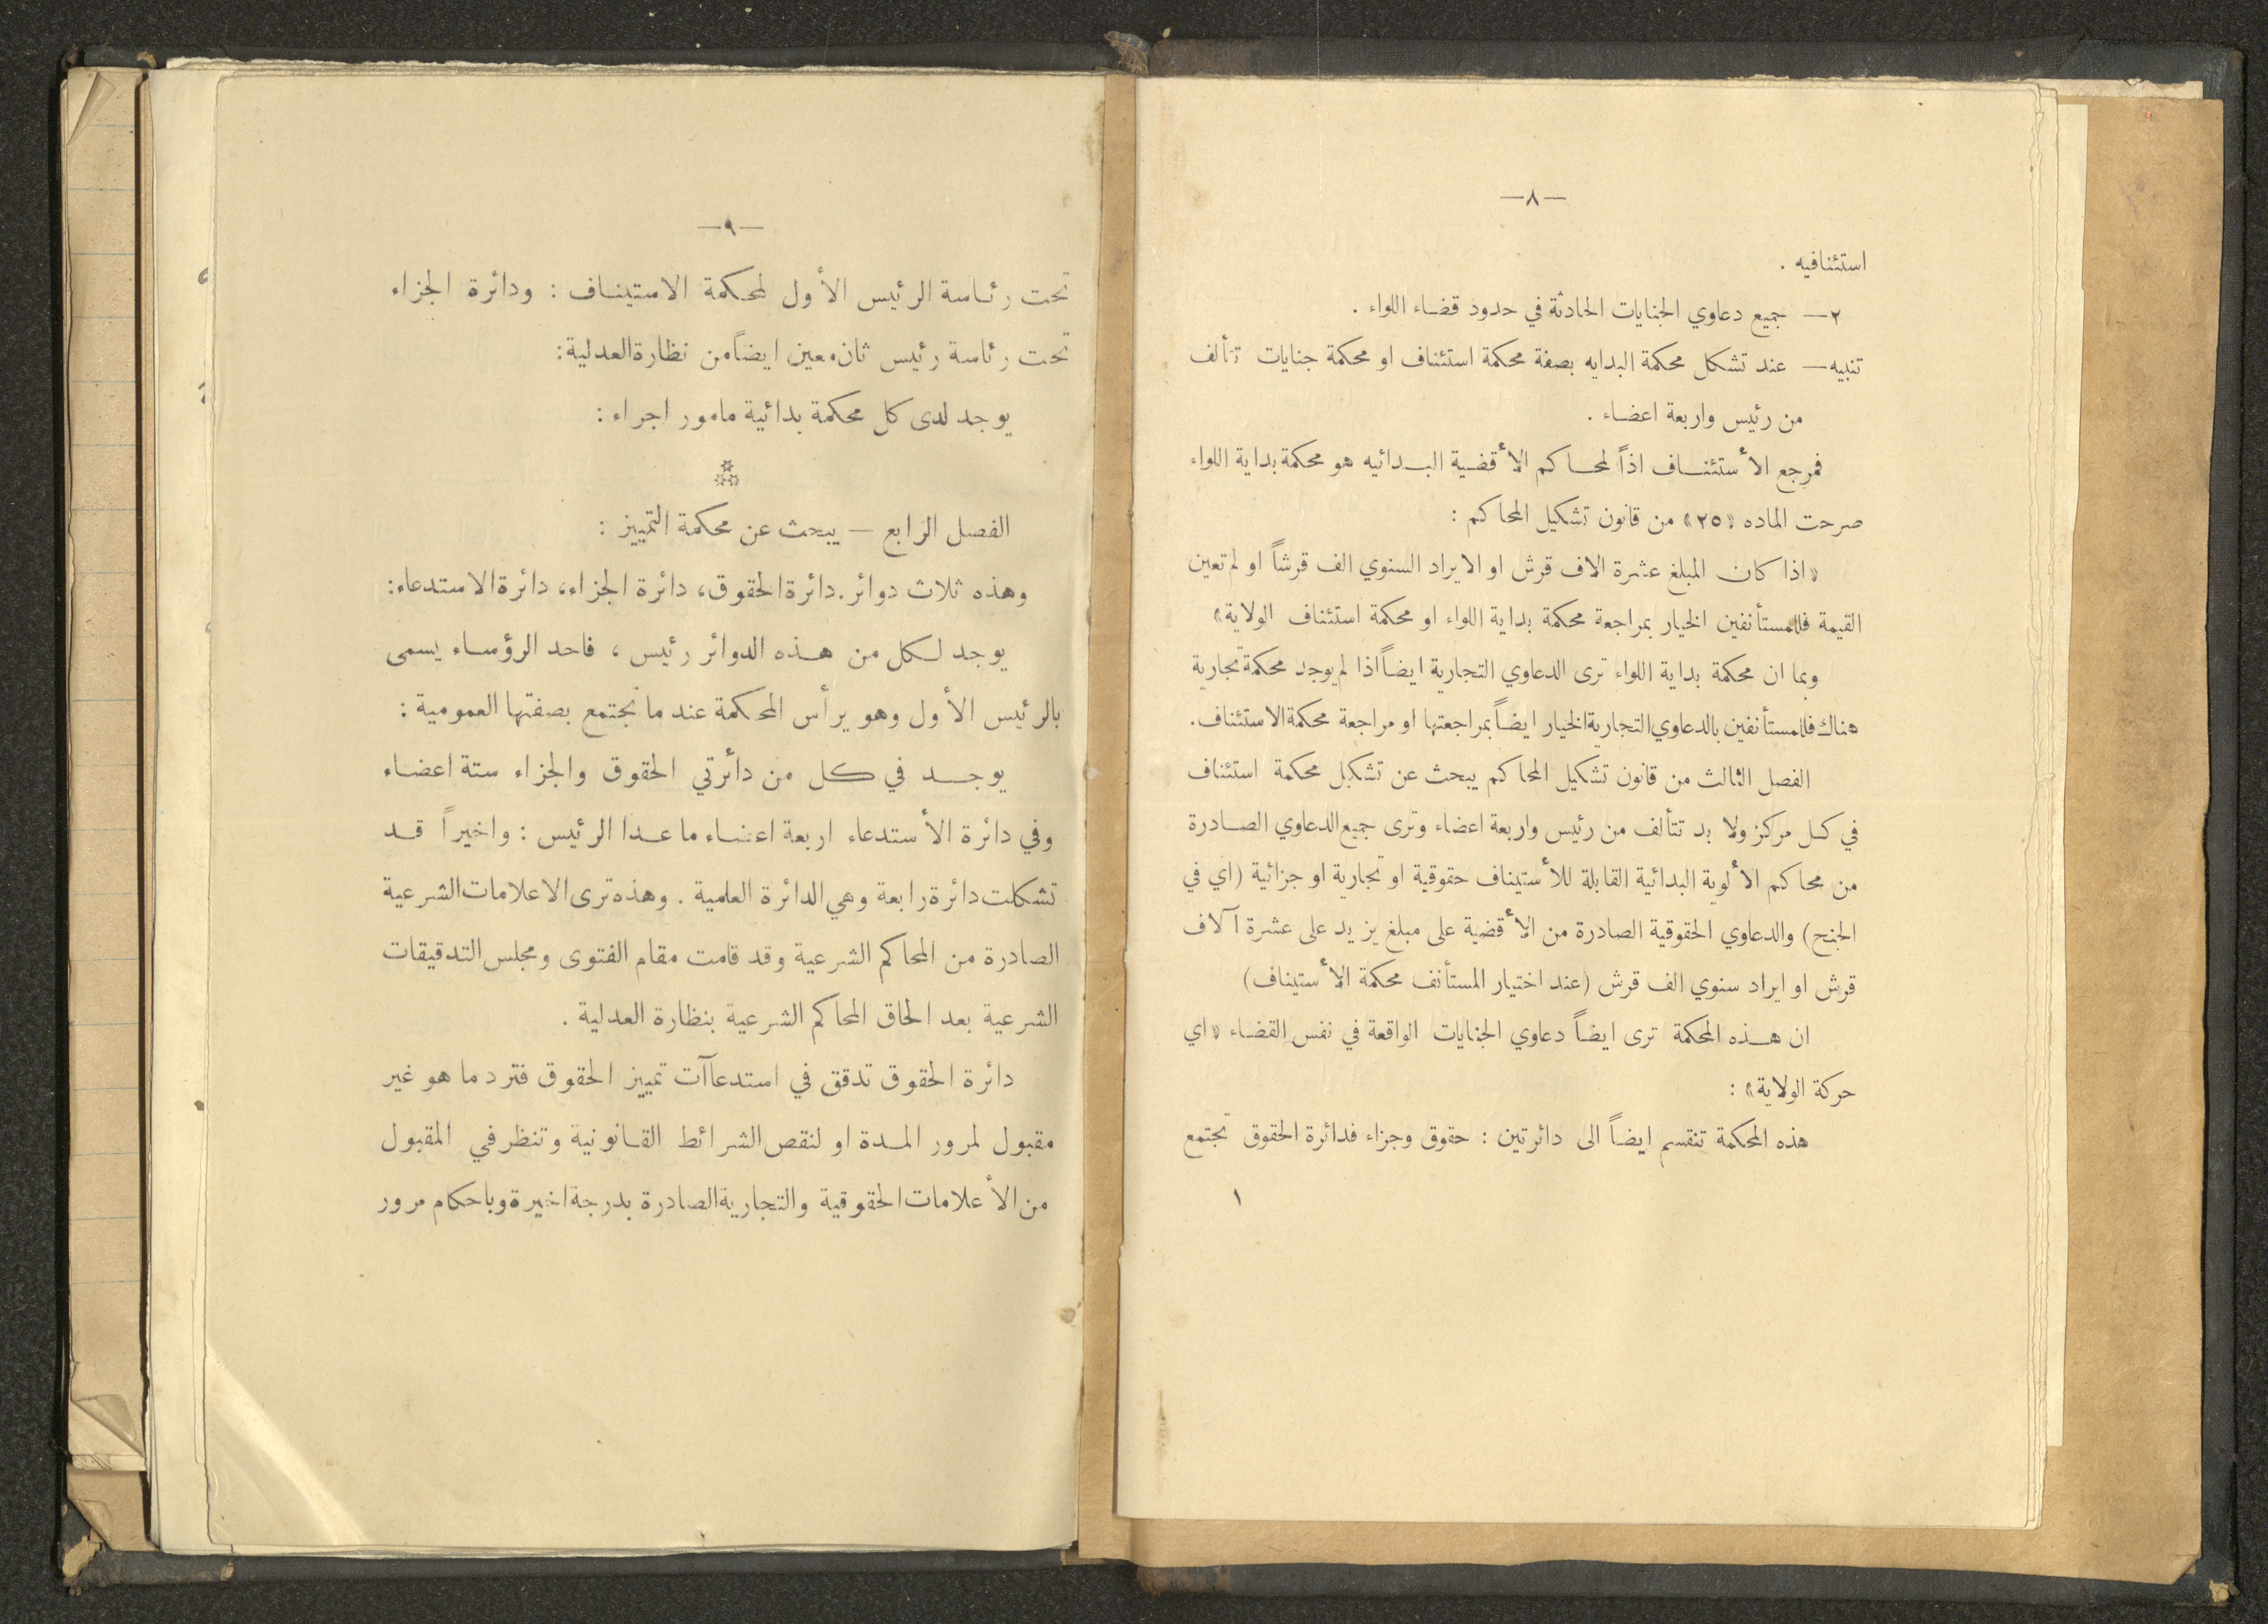 —٨—
استئنافيه .
٢— جميع دعاوي الجنايات الحادثة في حدود قضاء اللواء .
تنبيه — عند تشكل محكمة البدايه بصفة محكمة استئناف او محكمة جنايات تتألف
من رئيس واربعة اعضاء .
فمرجع الأستئناف اذاً لمحاكم الأقضية البدائيه هو محكمة بداية اللواء
صرحت الماده «٢٥» من قانون تشكيل المحاكم :
«اذا كان المبلغ عشرة الاف قرش او الايراد السنوي الف قرشاً او لم تعين
القيمة فللمستأنفين الخيار بمراجعة محكمة بداية اللواء او محكمة استئناف الولاية»
وبما ان محكمة بداية اللواء ترى الدعاوي التجارية ايضاً اذا لم يوجد محكمة تجارية
هناك فللمستأنفين بالدعاوي التجارية الخيار ايضاً بمراجعتها او مراجعة محكمة الاستئناف.
الفصل الثالث من قانون تشكيل المحاكم يبحث عن تشكيل محكمة استئناف
في كل مركز ولا بد تتألف من رئيس واربعة اعضاء وترى جميع الدعاوي الصادرة
من محاكم الألوية البدائية القابلة للأستيناف حقوقية او تجارية او جزائية (اي في
الجنح) والدعاوي الحقوقية الصادرة من الأقضية على مبلغ يزيد على عشرة آلاف
قرش او ايراد سنوي الف قرش (عند اختيار المستأنف محكمة الأستيناف)
ان هذه المحكمة ترى ايضاً دعاوي الجنايات الواقعة في نفس القضاء «اي
حركة الولاية» :
هذه المحكمة تنقسم ايضاً الى دائرتين : حقوق وجزاء فدائرة الحقوق تجتمع
١
—٩—
تحت رئاسة الرئيس الأول لمحكمة الاستيناف : ودائرة الجزاء
تحت رئاسة رئيس ثان معين ايضاً من نظارة العدلية:
يوجد لدى كل محكمة بدائية مامور اجراء :
الفصل الرابع — يبحث عن محكمة التمييز :
وهذه ثلاث دوائر. دائرة الحقوق، دائرة الجزاء، دائرة الاستدعاء:
يوجد لكل من هذه الدوائر رئيس ، فاحد الرؤساء يسمى
بالرئيس الأول وهو يرأس المحكمة عند ما تجتمع بصفتها العمومية :
يوجد في كل من دائرتي الحقوق والجزاء ستة اعضاء
وفي دائرة الأستدعاء اربعة اعضاء ما عدا الرئيس : واخيراً قد
تشكلت دائرة رابعة وهي الدائرة العلمية . وهذه ترى الاعلامات الشرعية
الصادرة من المحاكم الشرعية وقد قامت مقام الفتوى ومجلس التدقيقات
الشرعية بعد الحاق المحاكم الشرعية بنظارة العدلية .
دائرة الحقوق تدقق في استدعاآت تمييز الحقوق فترد ما هو غير
مقبول لمرور المدة او لنقص الشرائط القانونية وتنظر في المقبول
من الأعلامات الحقوقية والتجارية الصادرة بدرجة اخيرة وباحكام مرور